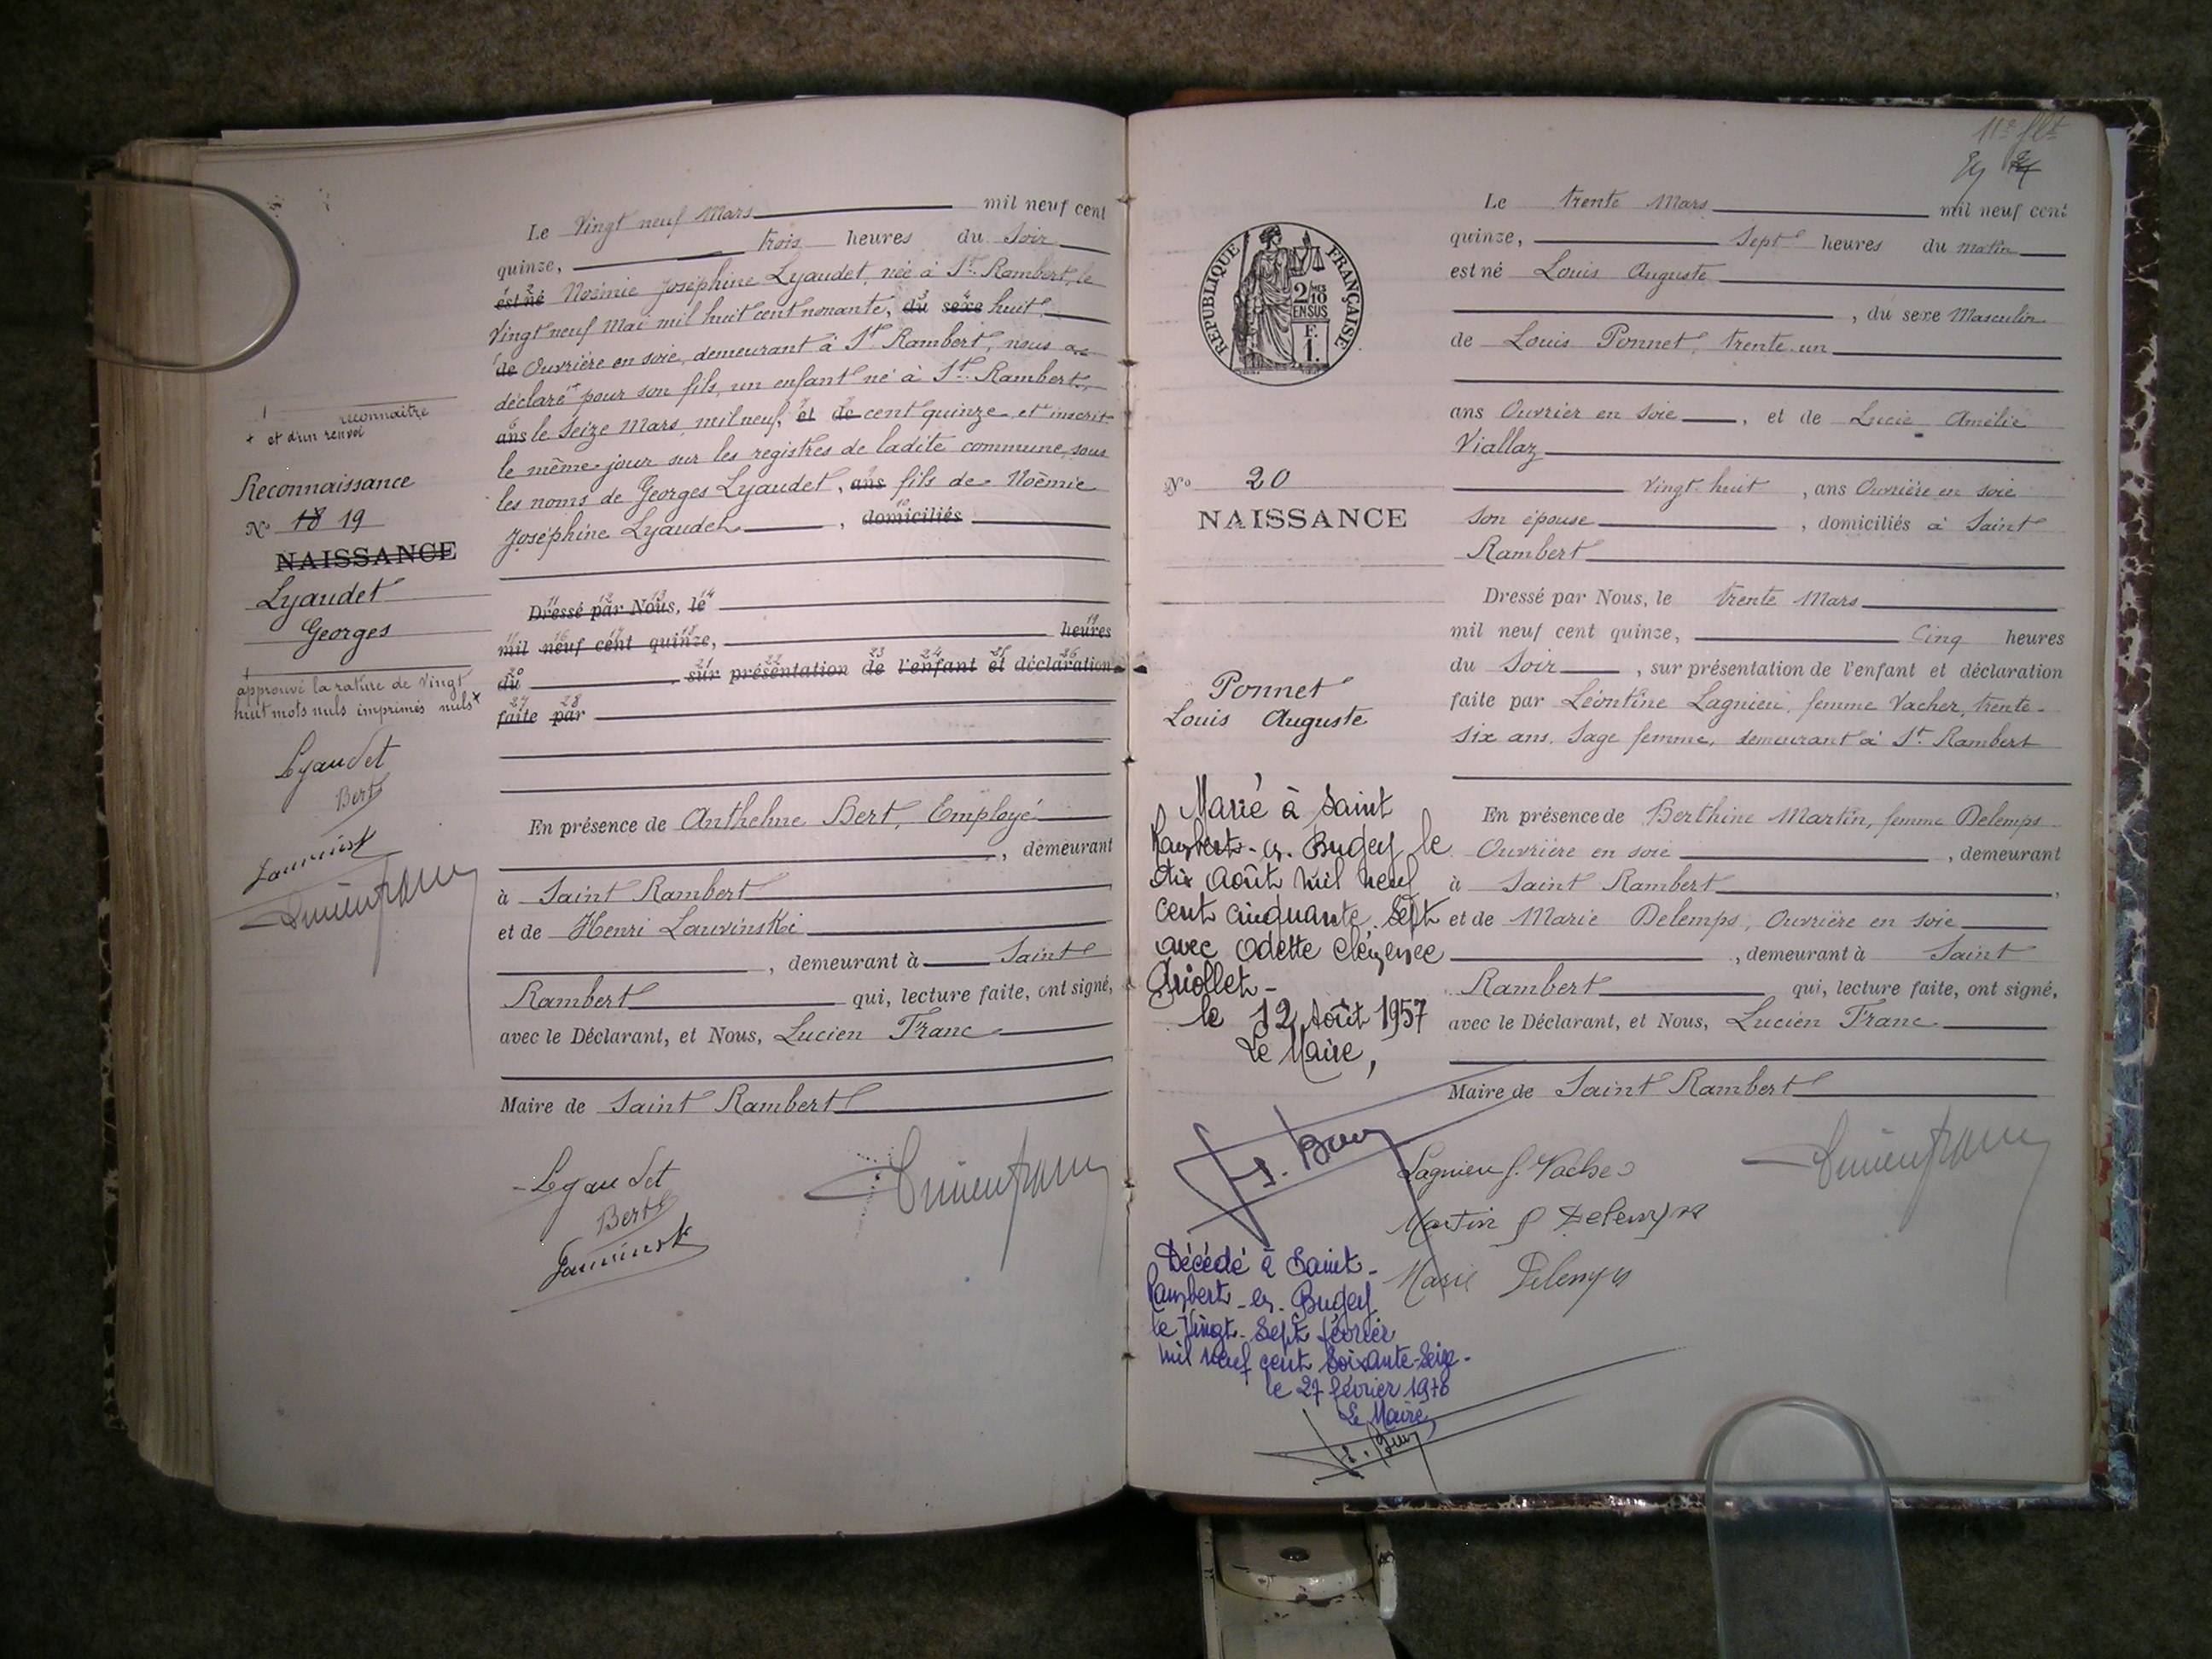 Le Vingt neuf Mars mil neuf cent
quinze, trois heures du Soir
est né Noémie Joséphine Lyaudet, née à St. Rambert, le
Vingt neuf Mai mil huit cent nonante, du sexe huit,
de Ouvrière en soie, demeurant à St Rambert, nous a
déclaré + pour son fils, un enfant né à St. Rambert,
ans le Seize Mars mil neuf, et de cent quinze et inscrit
le même jour sur les registres de ladite commune, sous
les noms de Georges Lyaudet, ans fils de Noëmie
Joséphine Lyaudet, domiciliés
Dressé par Nous, le
mil neuf cent quinze, heures
du , sur présentation de l'enfant et déclaration
faite par
reconnaître
+ et d'un renvoi
Reconnaissance
No 18 19
NAISSANCE
Lyaudet
Georges
approuvé la rature de Vingt
huit mots nuls imprimés nuls +
Lyaudet
Bert
En présence de Anthelme Bert, Employé
, demeurant
à Saint Rambert
et de Henri Lauvinski
, demeurant à Saint
Rambert qui, lecture faite, ont signé,
avec le Déclarant, et Nous, Lucien Franc
Maire de Saint Rambert
Lyaudet
Bert
Le trente Mars mil neuf cent
quinze, Sept heures du matin
est né Louis Auguste
, du sexe Masculin
de Louis Ponnet, trente un
ans Ouvrier en Soie , et de Lucie Amélie
Viallaz
Vingt huit , ans Ouvrière en soie
Son épouse , domiciliés à Saint
Rambert
Dressé par Nous, le trente Mars
mil neuf cent quinze, Cinq heures
du Soir , sur présentation de l'enfant et déclaration
faite par Léontine Lagnieu, femme Vacher, trente-
six ans, Sage femme, demeurant à St. Rambert
En présence de Berthine Martin, femme Delemps
Ouvrière en soie , demeurant
à Saint Rambert ,
et de Marie Delemps, Ouvrière en soie
, demeurant à Saint
Rambert qui, lecture faite, ont signé,
avec le Déclarant, et Nous, Lucien Franc
Maire de Saint Rambert
RÉPUBLIQUE FRANÇAISE
2/10 EN SUS
F.
1.
No 20
NAISSANCE
Ponnet
Louis Auguste
Marié à Saint
Rambert-en-Bugey le
dix Août mil neuf
cent cinquante-Sept
avec Odette Clémence
Ariollet-
le 12 Août 1957
Le Maire,
Lagnieu f. Vacher
Martin f Delemps
Marie Delemps
Décédé à Saint-
Rambert-en-Bugey
le Vingt-Sept février
mil neuf cent Soixante-Seize-
le 27 février 1976
Le Maire,